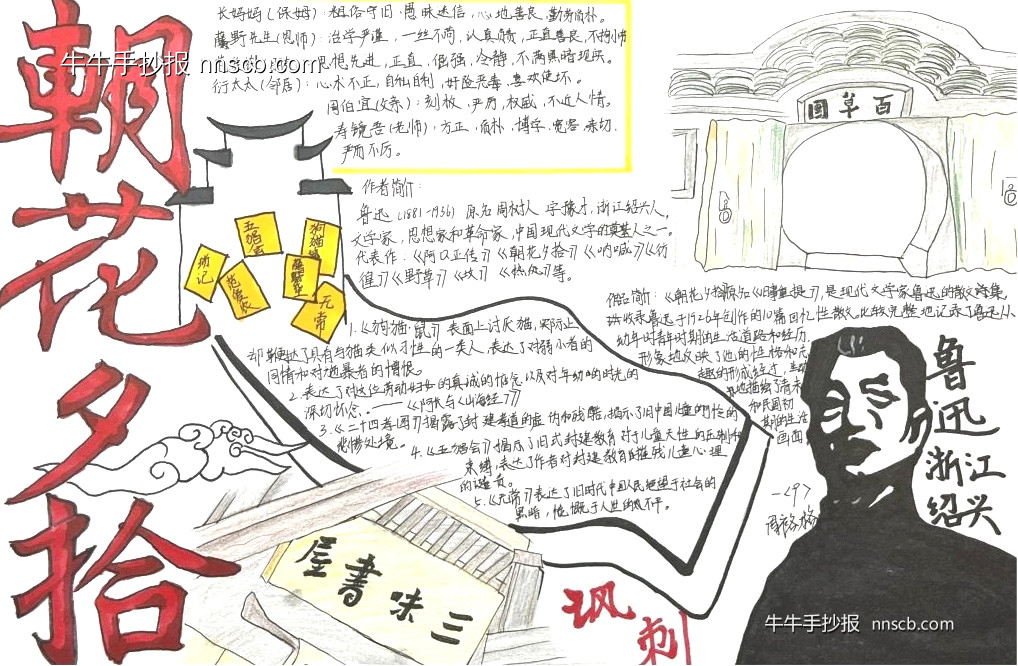 朝花夕拾
长妈妈（保姆）：粗俗守旧、愚昧迷信，心地善良、勤劳质朴。
藤野先生（恩师）：治学严谨，一丝不苟，认真负责，正直善良，不拘小节
思想先进，正直、倔强、冷静，不满黑暗现实。
衍太太（邻居）：心术不正，自私自利，奸险恶毒，喜欢使坏。
周伯宜（父亲）：刻板，严厉，权威，不近人情。
寿镜吾（老师）：方正、质朴、博学、宽容、亲切、
严而不厉。
牛牛手抄报 nnscb.com
百草园
作者简介：
鲁迅（1881-1936）原名周树人 字豫才，浙江绍兴人，
文学家，思想家和革命家，中国现代文学的奠基人之一。
代表作：《阿Q正传》《朝花夕拾》《呐喊》《彷
徨》《野草》《坟》《热风》等。
五猖会
狗猫鼠
琐记
范爱农
藤野先生
无常
1.《狗猫鼠》表面上讨厌猫，实际上
却鞭挞了具有与猫类似习性的一类人，表达了对弱小者的
同情和对施暴者的憎恨。
2.表达了对这位劳动妇女的真诚的怀念，以及对年幼时的时光的
深切怀念。——《阿长与《山海经》》
3.《二十四孝图》揭露了封建孝道的虚伪和残酷，揭示了旧中国儿童的可怜的
悲惨处境。
4.《五猖会》揭示了旧式封建教育对于儿童天性的压制和
束缚，表达了作者对封建教育摧残儿童心理
的谴责。
5.《无常》表达了旧时代中国人民绝望于社会的
黑暗，愤慨于人世的不平。
作品简介：《朝花夕拾》原名《旧事重提》，是现代文学家鲁迅的散文集，
收录鲁迅于1926年创作的10篇回忆性散文，比较完整地记录了鲁迅从
幼年到青年时期的生活道路和经历，
形象地反映了他的性格和志
趣的形成经过，生动
地描绘了清末
和民国初
期的生活
画面
鲁迅
浙江
绍兴
三味書屋
讽刺
牛牛手抄报 nnscb.com